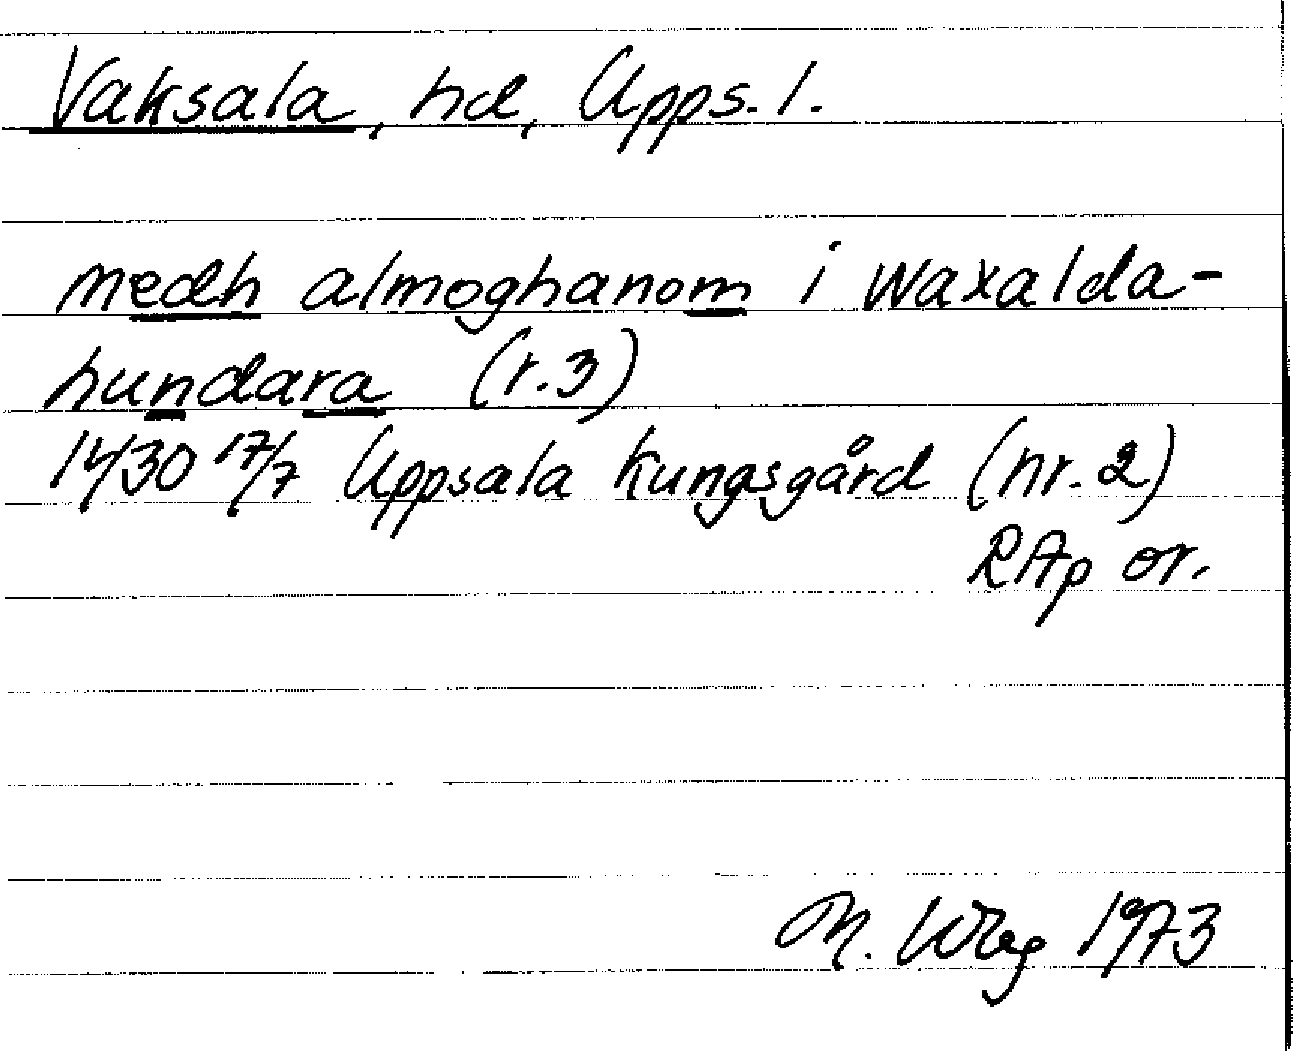 Vaksala, hd, Upps. l.
medh almoghanom i waxalda-
hundara (r.3)
1430 17/7 Uppsala Kungsgård (nr. 2)
RAp or.
M. Wbg 1973